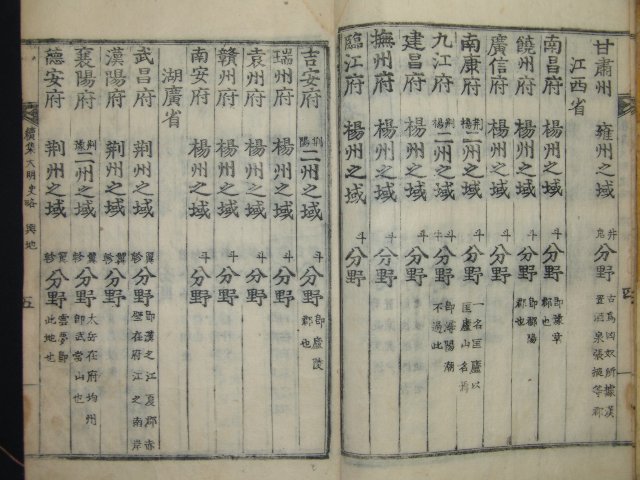 甘肅州 雍州之域 井鬼 分野 古爲凶奴所據漢置酒泉張掖等郡
江西省
南昌府 楊州之域 斗 分野 即豫章郡也
饒州府 楊州之域 斗 分野 即鄱陽郡也
廣信府 楊州之域 斗 分野
南康府 荆楊 二州之域 斗 分野 一名匡廬以匡廬山名
九江府 荆楊 二州之域 斗 分野 即潯陽潮不過此
建昌府 楊州之域 斗 分野
撫州府 楊州之域 斗 分野
臨江府 楊州之域 斗 分野
吉安府 二州之域 斗 分野 即廬陵郡也
瑞州府 楊州之域 斗 分野
袁州府 楊州之域 斗 分野
贛州府 楊州之域 斗 分野
南安府 楊州之域 斗 分野
湖廣省
武昌府 荆州之域 翼軫 分野 即漢之江夏郡赤壁在府江之南岸
漢陽府 荆州之域 翼軫 分野
襄陽府 荆豫 二州之域 翼軫 分野 太岳在府均州即武當山也
德安府 荆州之域 翼軫 分野 雲夢即此地也
續集大明史略 輿地 五